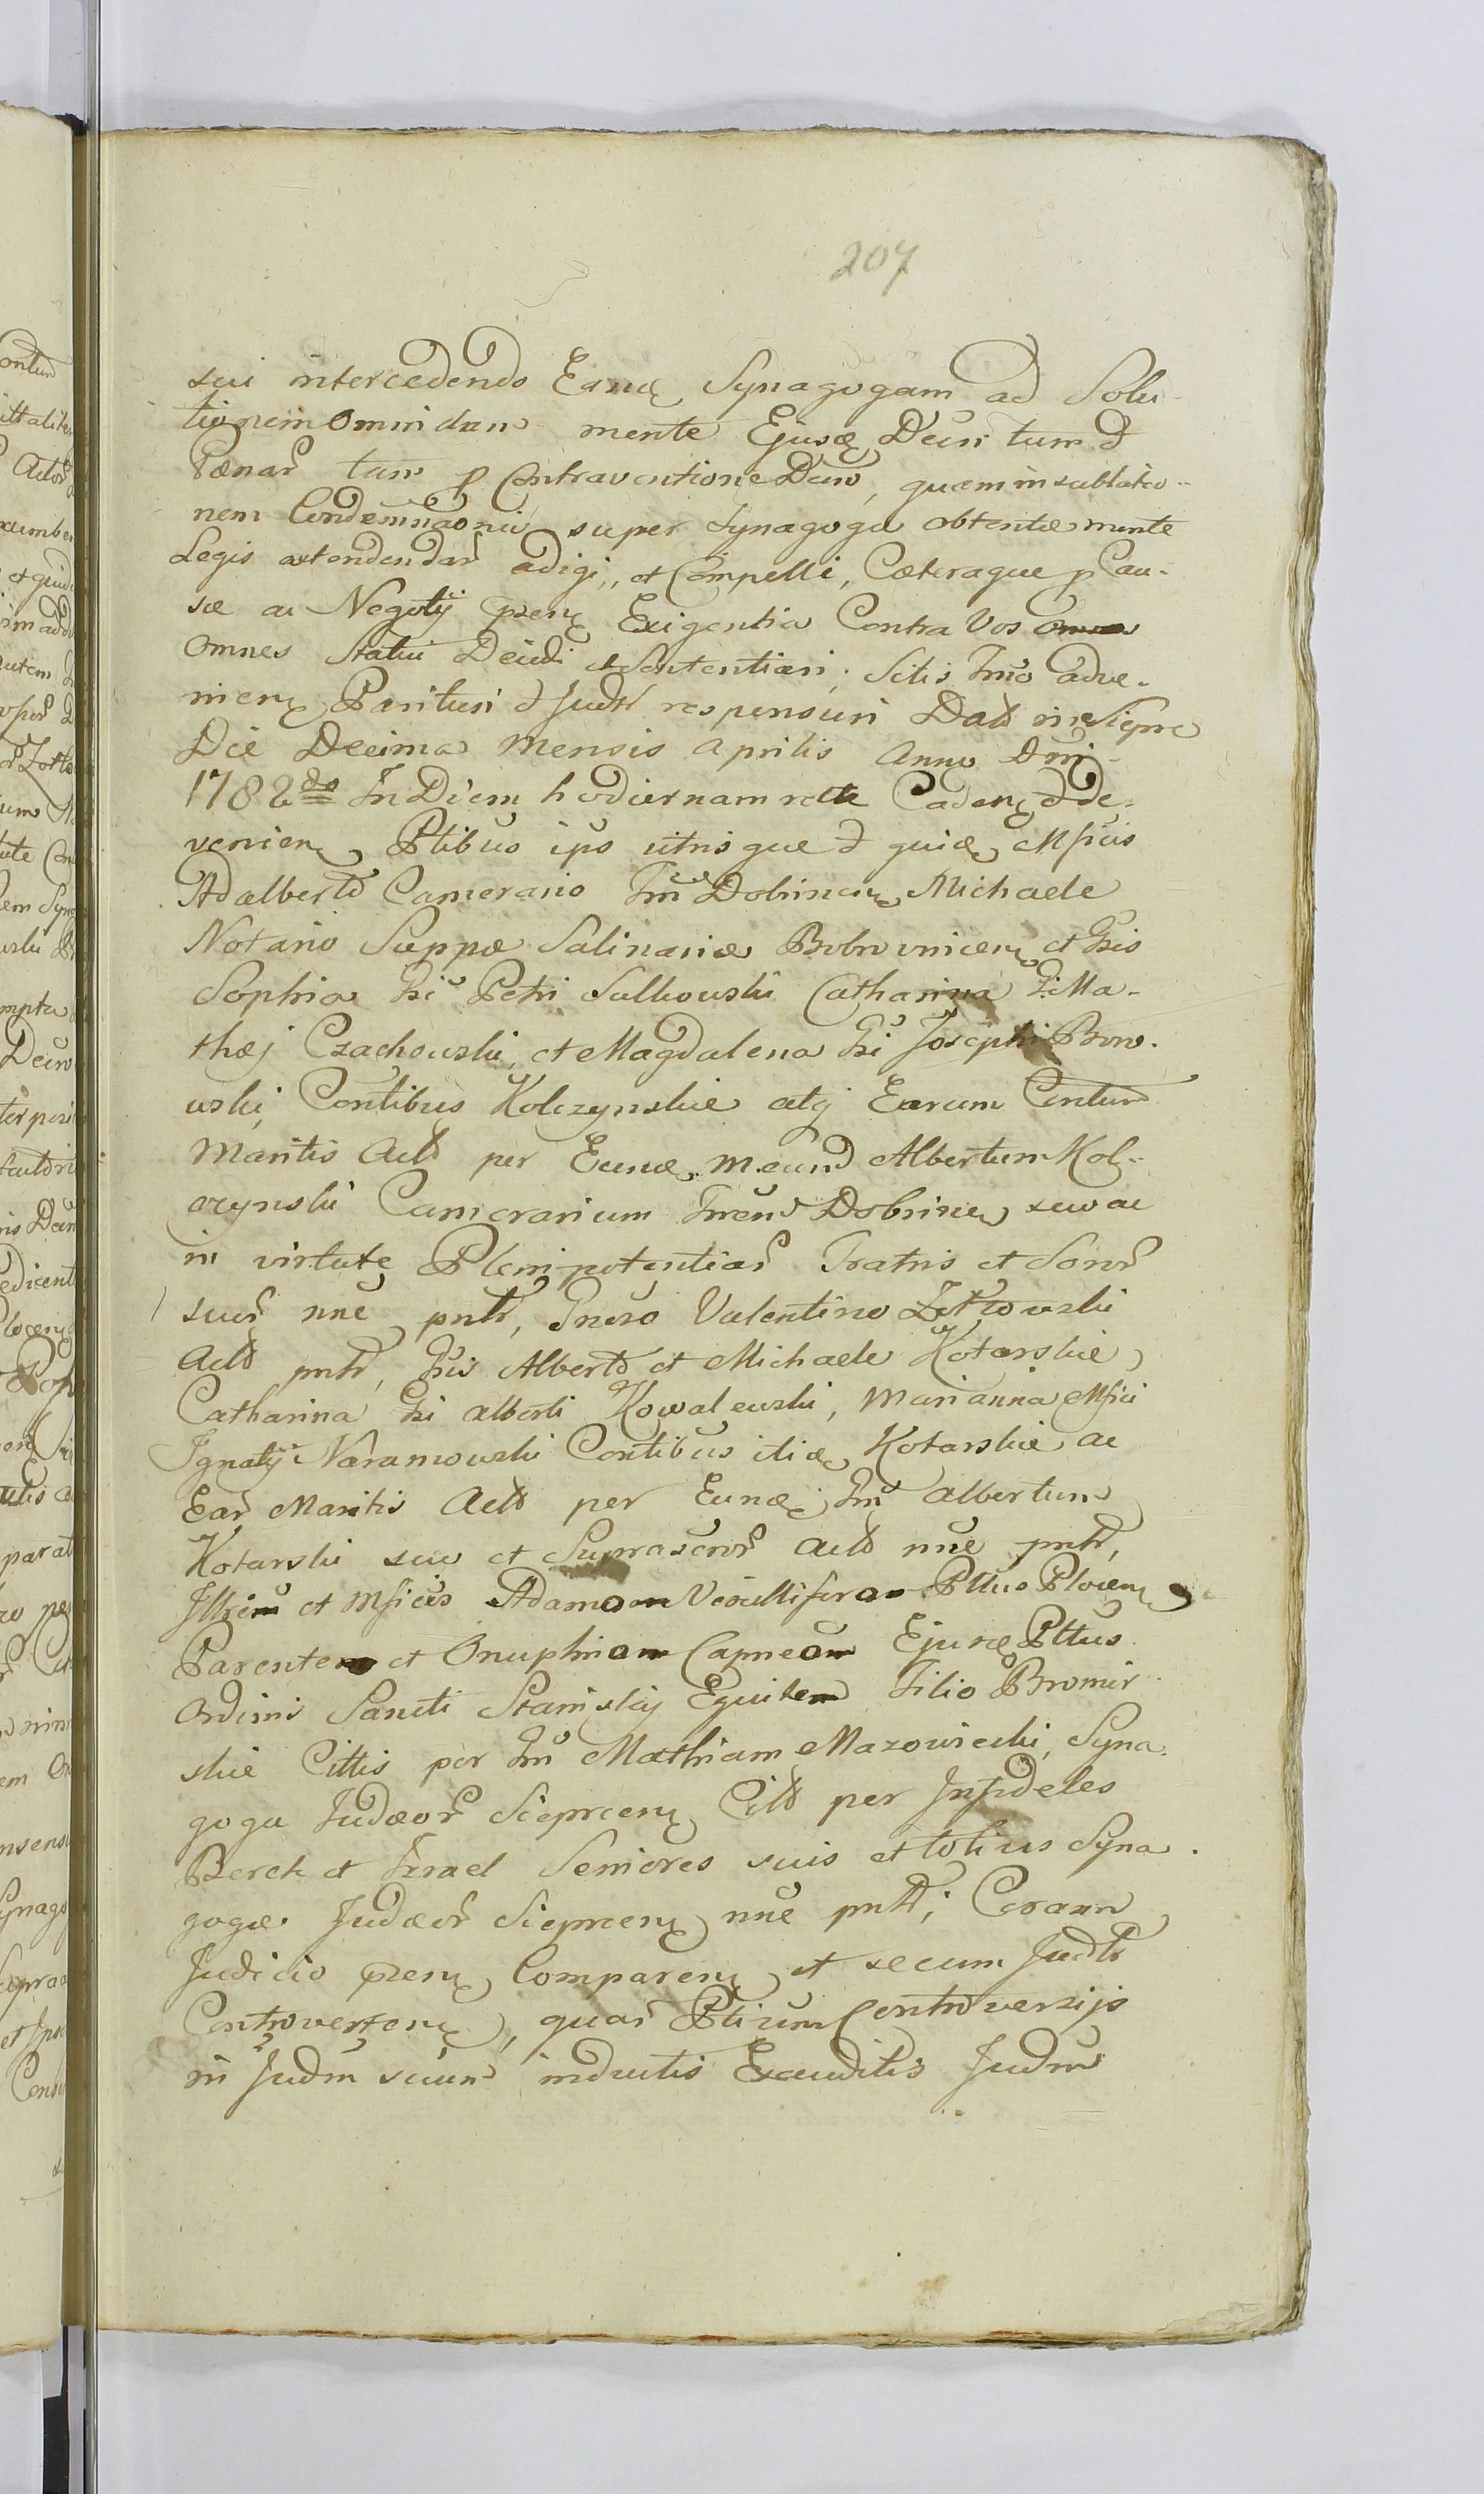 207
sui intercedendo Eand Synagogam ad Solu-
tionem omnidum mente Ejusd Decri tum &
Pænar tam p Contraventione Decro, quam in sublatio-
nem Condemnaonis super Synagoga obtentæ mente
Legis extendendar adigi, et Compelli, Cæteraque p Cau-
sæ ac Negotij Exigentia Contra Vos
omnes Statui Decidi et Sententiari. Sitis Trmo adve-
nien Parituri & Judtr responsuri Datt in Sierpc
Die Decima Mensis Aprilis Anno Dni
1782do In Diem hodiernam rette Caden & de-
venien Ptibus ips utrisque & quid Mficis
Adalberto Camerario Trrĩ Dobrinen, Michaele
Notario Suppæ Salinariæ Bobrovnicen et Gsis
Sophia Gsi Petri Sulkowski Catharina G. Ma-
thæj Czachowski, et Magdalena Gsi Josephi Boro-
wski, Contibus Kolczynskie atq Earum Contum
Maritis Actt per Eund M. eund Albertum Kol-
czynski Camerarium Trren Dobrinen suo ac
in virtute Plenipotentiar Fratris et Soror
suar nne pntt, Gneso Valentino Zotkowski
Actt pntt, Gsis Alberto et Michaele Kotarskie
Catharina Gsi Alberti Kowalewski, Marianna Mfici
Ignatij Naramowski Contibus itid Kotarskie ac
Ear Maritis Actt per Eund Gm Albertum
Kotarski suo et Suprascror Actt nne pntt,
Illrem et Mficis Adamo Vexillifero Pttus Plocen
Parente et Onuphrio Capneo Ejusd Pttus
Ordinis Sancti Stanislaj Equitem Filio Bromir
skie Cittis per Gm Mathiam Mazowiecki, Syna-
goga Judæor Sieprcen Citt per Infideles
Berek et Izrael Seniores suis et totius Syna-
gogæ Judæor Sieprcen nne pntt; Coram
Judicio Comparen et secum Judtr
Controverten, quar Ptium Controversijs
in Judm suum inductis Exauditis Judm